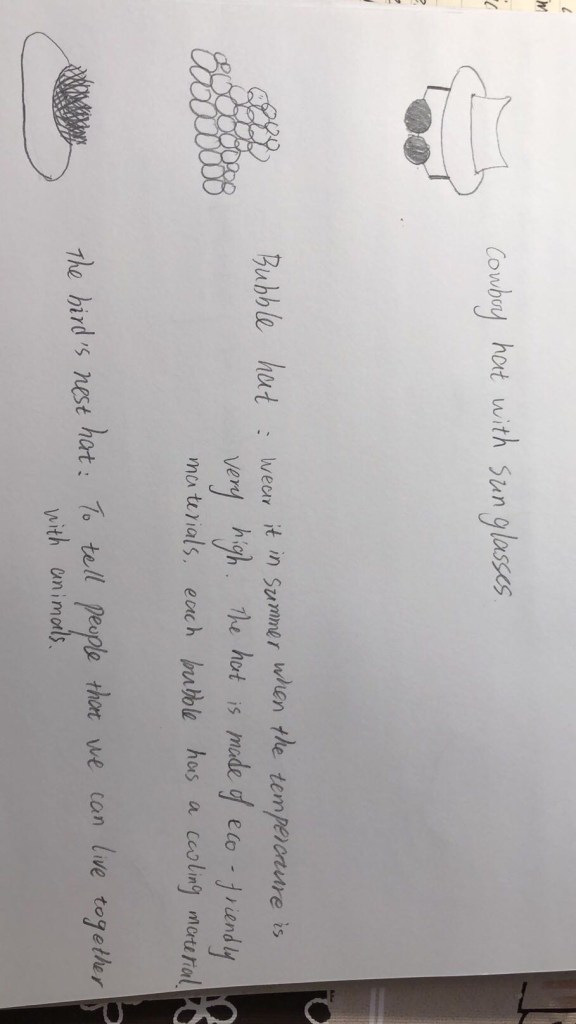 Cowboy hat with sun glasses.
Bubble hat : wear it in summer when the temperature is
very high. The hat is made of eco-friendly
materials. each bubble has a cooling material.
The bird's nest hat : To tell people that we can live together
with animals.